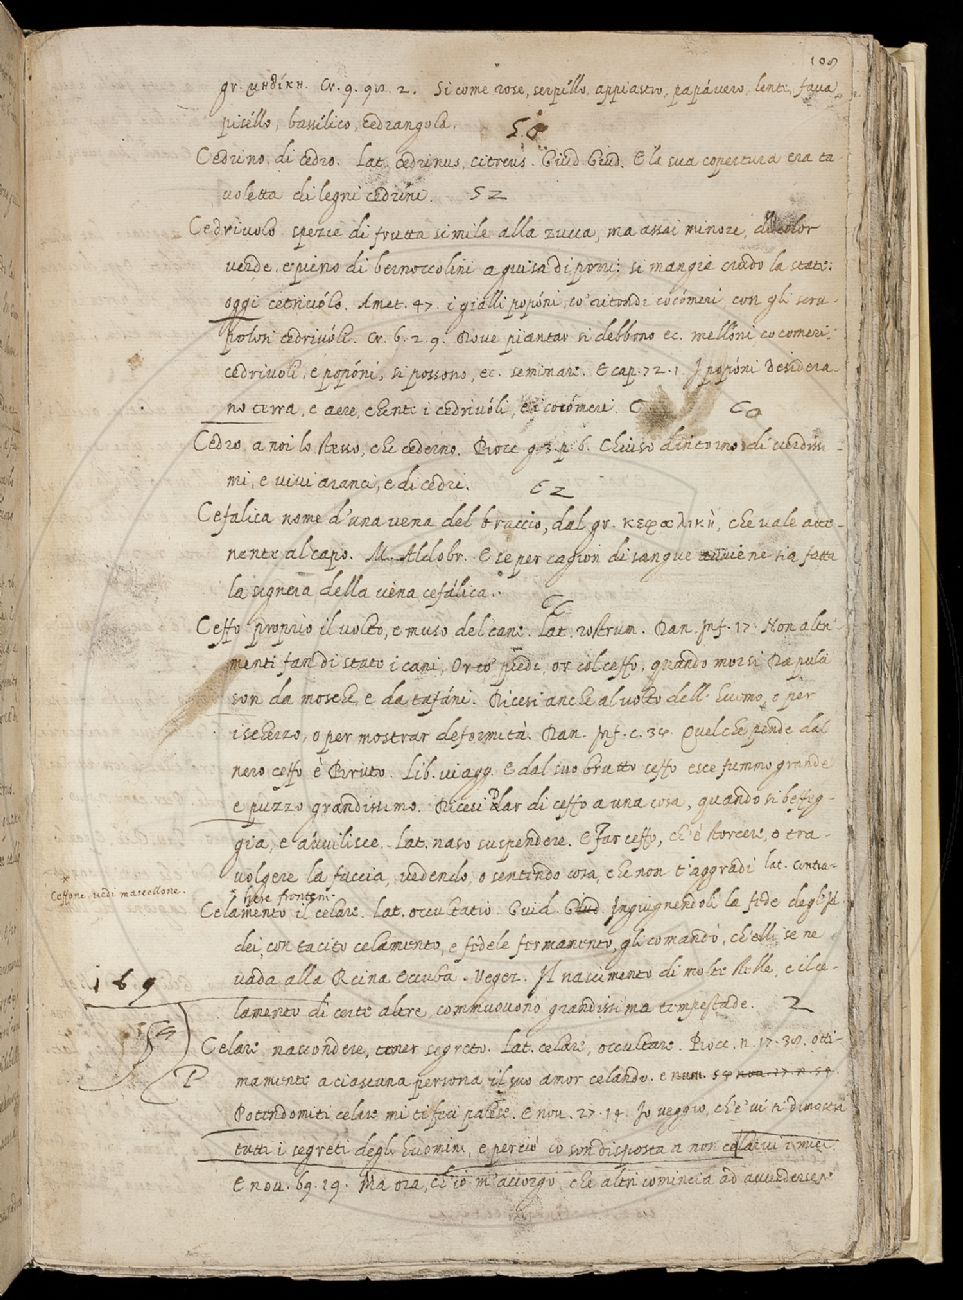 109
gr. μηδίκη. Cr. 9. 90. 2. Sicome rose, serpillo, appiastro, papávero, lente, fava
pisello, bassilico, cedrangola.
Cedrino, di cedro. Lat. cedrinus, citreus. Guid. Giud. E la sua copertura era ta-
voletta di legni cedrini. 52
Cedriuolo spezie di frutta simile alla zucca, ma assai minore, di color
verde, e pieno di bernoccolini a guisa di porri: si mangia crudo la state:
oggi cetriuólo. Amet. 47. i gialli popóni, co' ritondi cocómeri con gli scru-
polosi cedriuóli. Cr. 6. 2. 9. Dove piantar si debbono ec. mellóni cocomeri,
cedriuoli, e popóni, si possono, ec. seminare. E cap. 72. 1. I popóni desidera-
no terra, e aere, chente i cedriuóli, e i cocómeri.
Cedro, a noi lo stesso, che cederno. Bocc. g. 3. p. 6. Chiuso dintorno di verdissi-
mi, e vivi aranci, e di cedri.
Cefalica nome d'una vena del braccio, dal gr. κεφαλικὴ, che vale atte-
nente al capo. M. Aldobr. E se per cagion di sangue avviene sia fatta
la signeia della véna cefálica.
Ceffo proprio il volto, e muso del cane. Lat. rostrum. Dan. Inf. 17. Non altri-
menti fan di state i cani, Or co' piedi, or col ceffo, quando morsi Da pulci
son da mosche e da tafáni. Dicesi anche al volto dell' huomo, e per
ischerzo, o per mostrar deformità. Dan. Inf. c. 34. Quel che pende dal
nero ceffo è Bruto. Lib. viagg. E dal suo brutto ceffo esce fummo grande
e puzzo grandissimo. Dicesi Dar di ceffo a una cosa, quando si beffeg-
gia, e avvilisce. Lat. naso suspendere. E Far ceffo, ch' è storcere, o tra-
volgere la faccia, vedendo, o sentendo cosa, che non t'aggradi lat. contra-
here frontem.
Ceffone, vedi mascellone.
Celamento il celare. Lat. occultatio. Guid. Giud. Ingiugnendoli la fede degl' Id-
dei, con tacito celamento, e fedele fermamento, gli comandò, ch' elli se ne
vada alla Reina Eccuba. Vegez. Il nascimento di molte stelle, e il ce-
169
lamento di certe altre, commuovono grandissima tempestade. 2
Celare nascondere, tener segreto. Lat. celare, occultare. Bocc. n. 17. 38. otti-
P mamente a ciascuna persona il suo amor celando. e num. 54
Potendomiti celare mi ti feci palese. E nov. 27. 14. Io veggio, ch' e' vi si dimostra
tutti i segreti degli huomini, e perciò io son disposta a non celarvi i miei
E nov. 69. 29. Ma ora, ch' io m' accorgo, che altri comincia ad avvedersene